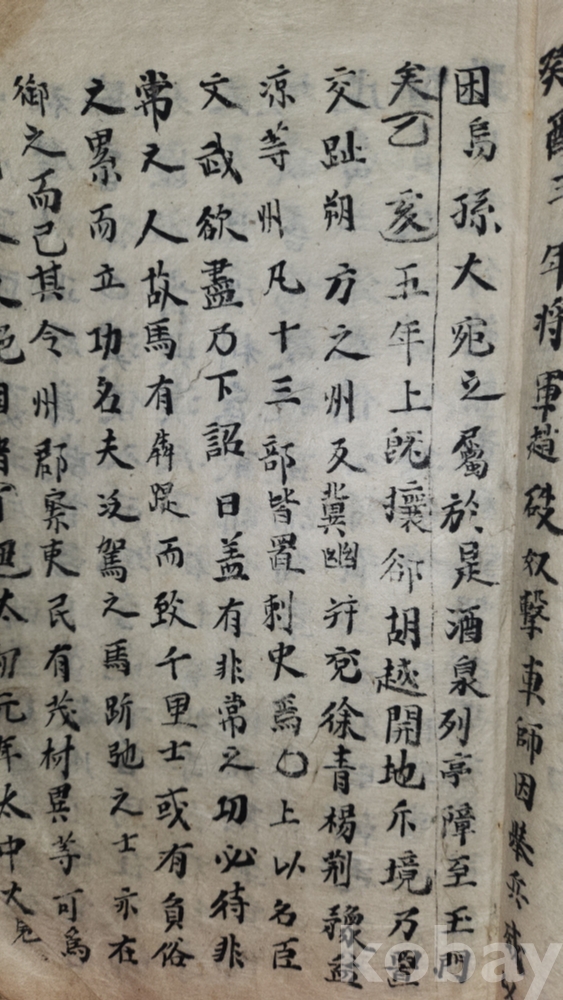 癸酉三年將軍趙破奴擊車師因
困烏孫大宛之屬於是酒泉列亭障至玉門
矣乙亥五年上旣攘郤胡越開地斥境乃置
交趾朔方之州及兾幽并兗徐青楊荆豫益
凉等州凡十三部皆置刺史焉〇上以名臣
文武欲盡乃下詔曰盖有非常之功必待非
常之人故馬有犇踶而致千里士或有負俗
之累而立功名夫泛駕之馬跅弛之士亦在
御之而已其令州郡察吏民有茂材異等可爲
絶國者太初元年太中大
kobay